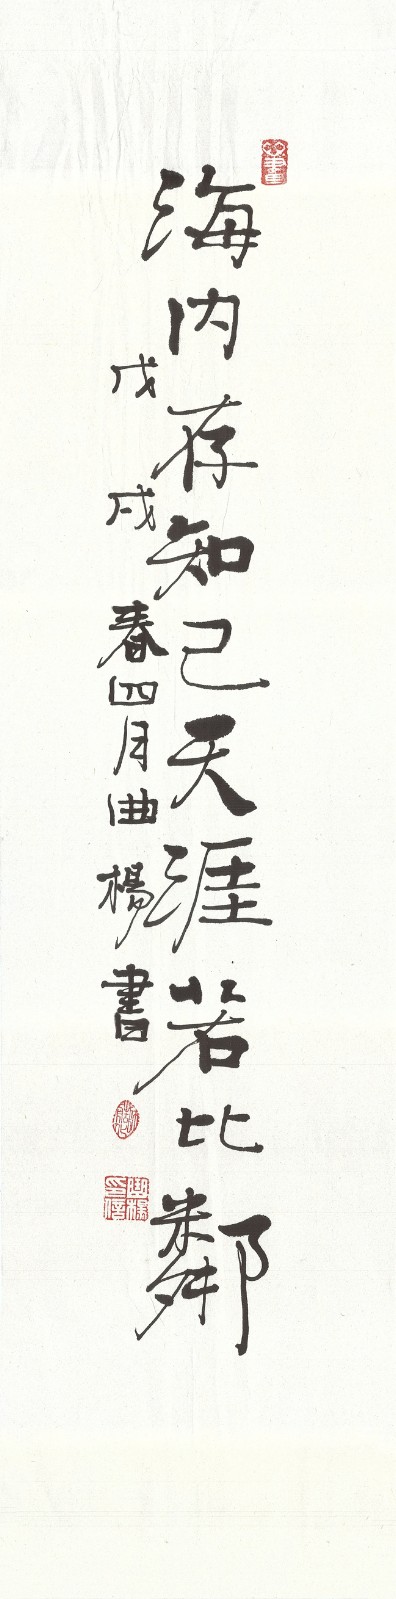 海内存知己天涯若比鄰
戊戌春四月曲楊書